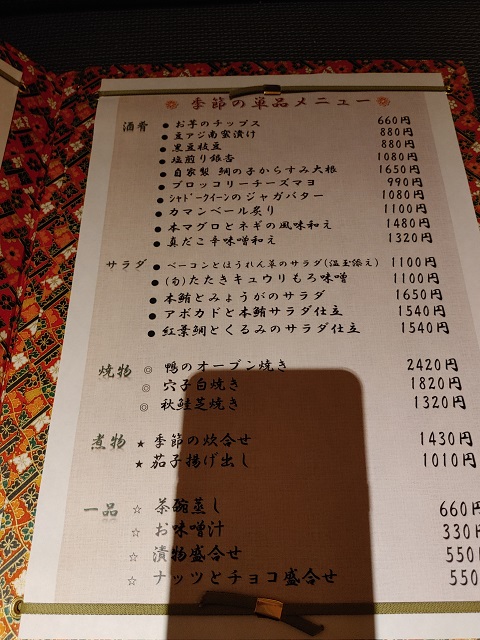 季節の単品メニュー
酒肴 ● お芋のチップス 660円
● 豆アジ南蛮漬け 880円
● 黒豆枝豆 880円
● 塩煎り銀杏 1080円
● 自家製 鯛の子からすみ大根 1650円
● ブロッコリーチーズマヨ 990円
● シャドークイーンのジャガバター 1080円
● カマンベール炙り 1100円
● 本マグロとネギの風味和え 1480円
● 真だこ辛味噌和え 1320円
サラダ ● ベーコンとほうれん草のサラダ(温玉添え) 1100円
● (旬)たたきキュウリもろ味噌 1100円
● 本鮪とみょうがのサラダ 1650円
● アボカドと本鮪サラダ仕立 1540円
● 紅葉鯛とくるみのサラダ仕立 1540円
焼物 ◎ 鴨のオーブン焼き 2420円
◎ 穴子白焼き 1820円
◎ 秋鮭芝焼き 1320円
煮物 ★ 季節の炊合せ 1430円
★ 茄子揚げ出し 1010円
一品 ☆ 茶碗蒸し 660円
☆ お味噌汁 330円
☆ 漬物盛合せ 550円
☆ ナッツとチョコ盛合せ 550